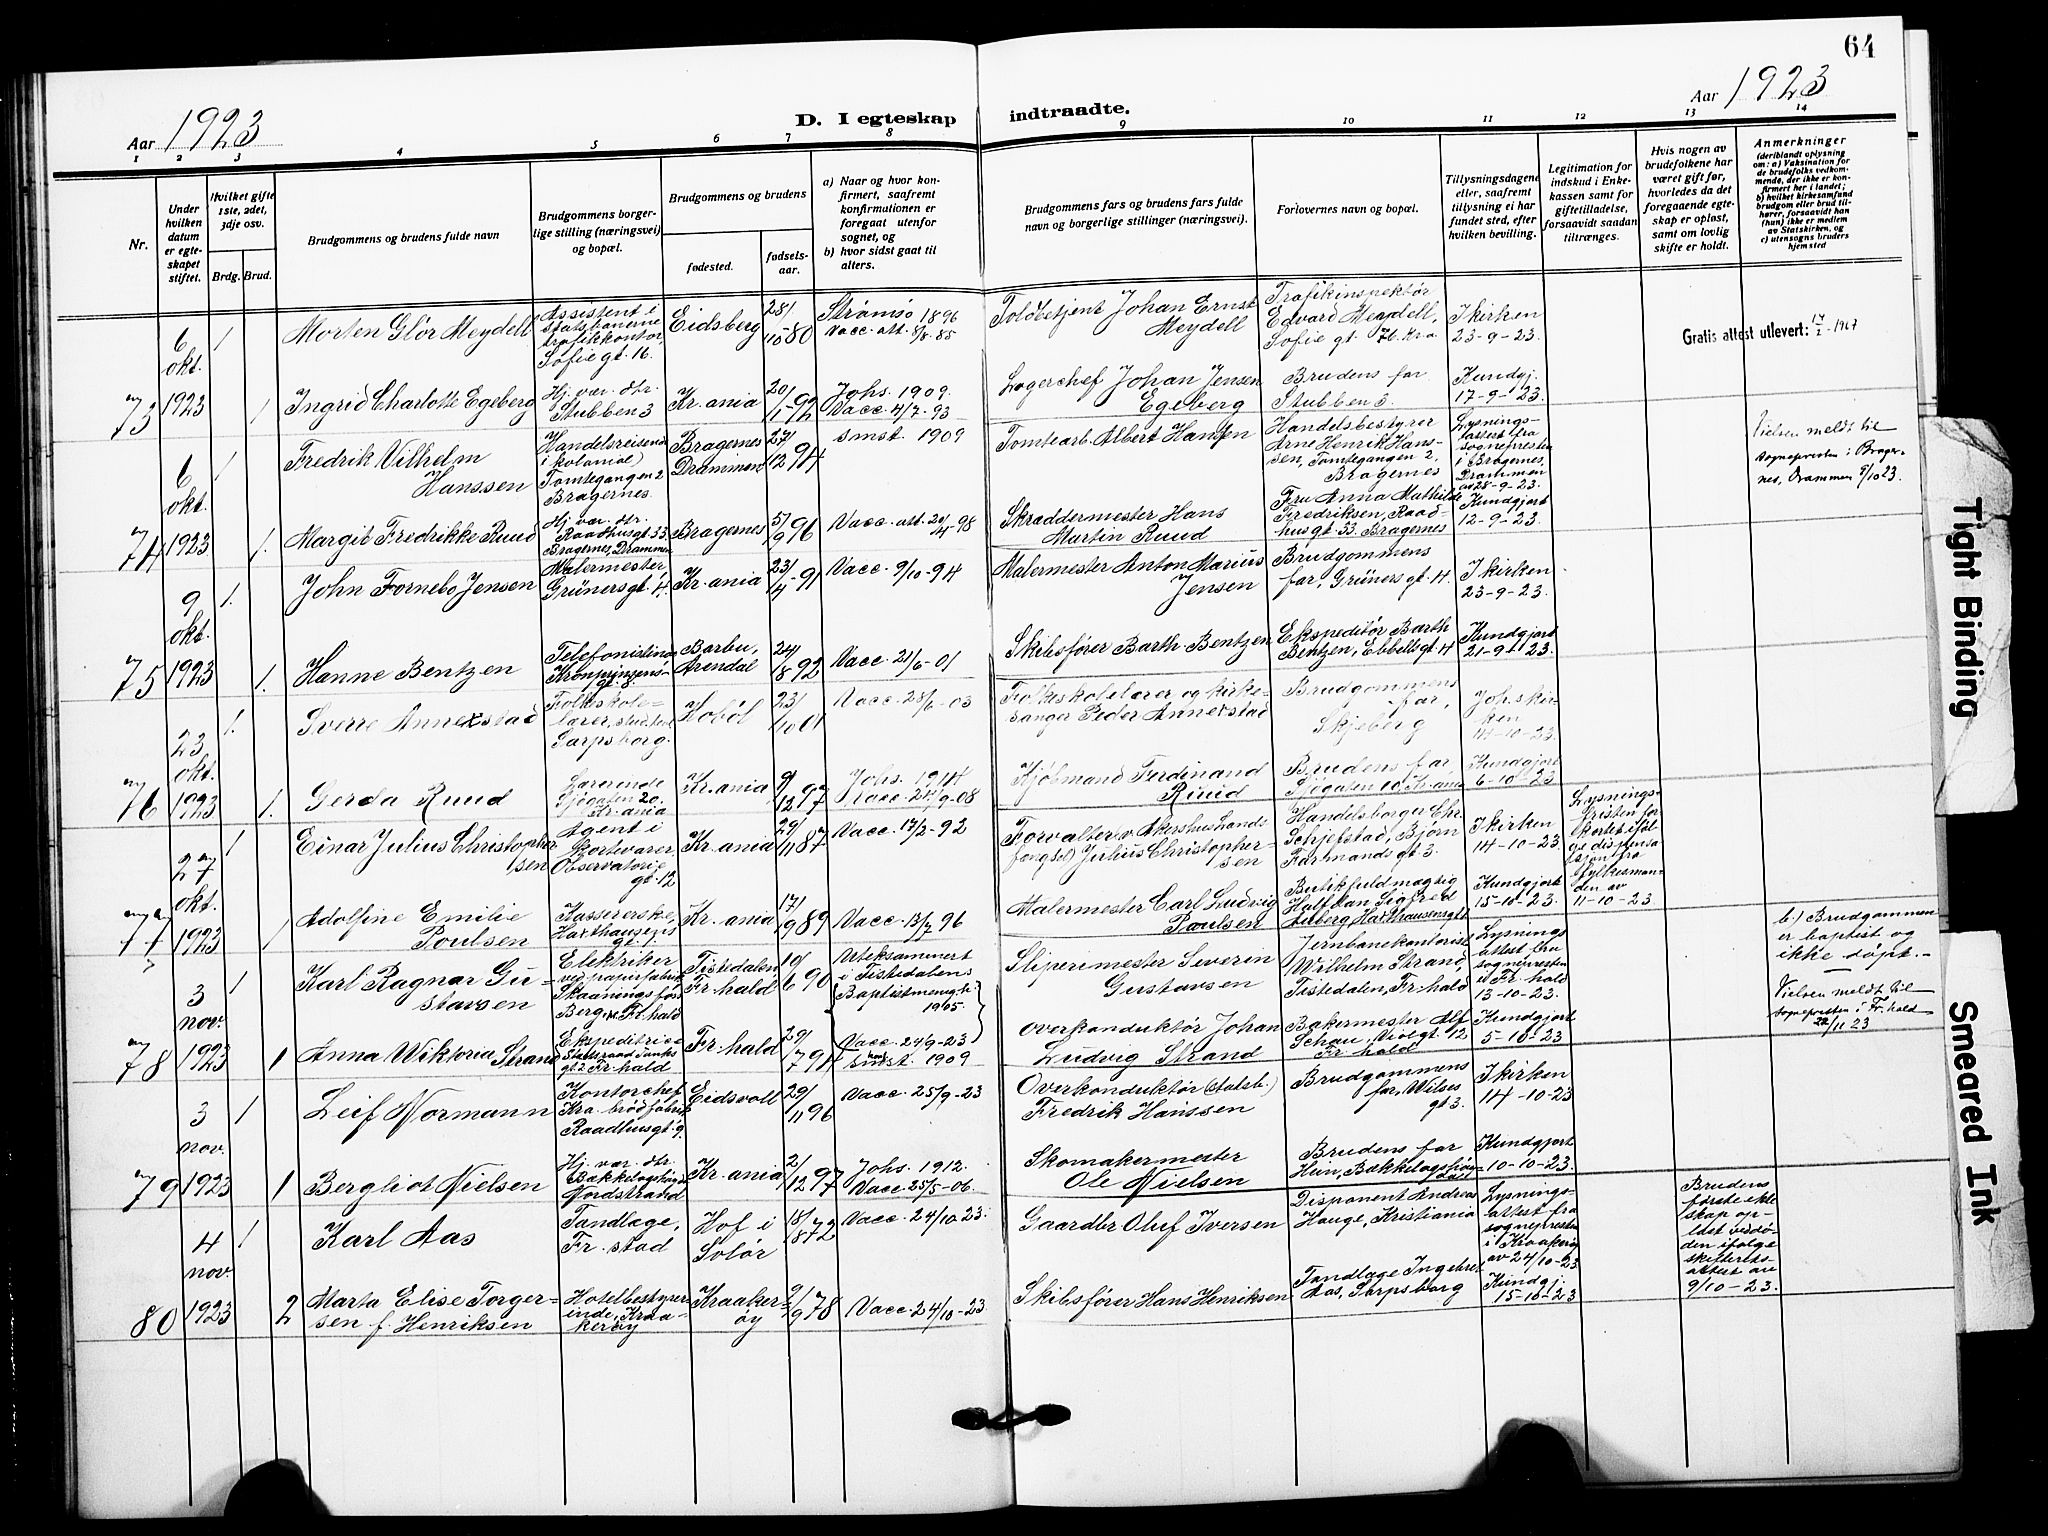 64
Aar 1923
D. I egteskap
indtraadte.
Aar 1923
1 2 3 4 5 6 7 8 9 10 11 12 13 14
Nr.
Under hvilken datum er egteskapet stiftet.
Hvilket gifte 1ste, 2det, 3dje osv.
Brdg. Brud.
Brudgommens og brudens fulde navn
Brudgommens borgerlige stilling (næringsvei) og bopæl.
Brudgommens og brudens
fødested.
fødselsaar.
a) Naar og hvor konfirmert, saafremt konfirmationen er foregaat utenfor sognet, og
b) hvor sidst gaat til alters.
Brudgommens fars og brudens fars fulde navn og borgerlige stillinger (næringsvei).
Forlovernes navn og bopæl.
Tillysningsdagene eller, saafremt tillysning ei har fundet sted, efter hvilken bevilling.
Legitimation for indskud i Enkekassen samt for giftetilladelse, forsaavidt saadan tiltrænges.
Hvis nogen av brudefolkene har været gift før, hvorledes da det foregaaende egteskap er opløst, samt om lovlig skifte er holdt.
Anmerkninger
(deriblandt oplysning om: a) Vaksination for de brudefolks vedkommende, der ikke er konfirmert her i landet; b) hvilket kirkesamfund brudgom eller brud tilhører, forsaavidt han (hun) ikke er medlem av Statskirken, og c) utensogns bruders hjemsted
73
6 okt. 1923
1
Morten Glör Meydell
Assistent i
Statsbanerne
trafikkontor,
Sofie gt. 16.
Eidsberg
28/10-80
Strømsø 1896
Vacc. att. 8/8-85
Toldbetjent Johan Ernst
Meydell
Trafikinspektör
Edvard Meydell,
Sofie gt. 76. Kr.a.
I kirken
23-9-23.
Gratis attest utlevert: 17/2-1967
1
Ingrid Charlotte Egeberg
Hj. vær. dtr.
Stubben 3
Kr.ania
20/1-92
Johs. 1909.
Vacc. 4/7-93
Lagerchef Johan Jensen
Egeberg
Brudens far
Stubben 3.
Kundgj.
17-9-23.
74
6 okt. 1923
1
Fredrik Vilhelm
Hanssen
Handelsreisende
i kolonial)
Tomtegangen 2
Bragernes.
Bragernes
Drammen
27/12 94
smst. 1909
Tomtearb. Albert Hansen
Handelsbestyrer
Arne Henrik Hans-
sen, Tomtegangen 2,
Bragernes
Lysnings-
attest fra
sognepresten
i Bragernes,
Drammen
av 28-9-23.
Vielsen meldt til
sognepresten i Brager-
nes, Drammen 9/10 23.
1.
Margit Fredrikke Ruud
Hj. vær. dtr.
Raadhusgt. 33
Bragernes, Drammen
Bragernes
5/9 96
Vacc. att. 20/4-98
Skræddermester Hans
Martin Ruud
Fru Anna Mathilde
Fredriksen, Raad-
husgt. 33. Bragernes
Kundgjort
12-9-23.
75
9 okt. 1923
1.
John Fornebo Jensen
Malermester
Grünersgt. 4.
Kr.ania
23/4-91
Vacc. 9/10-94
Malermester Anton Marius
Jensen
Brudgommens
far, Grüners gt. 4.
I kirken
23-9-23.
1.
Hanne Bentzen
Telefonistinde
Kronprinsens-
gt. 8.
Barbu,
Arendal
24/8 92
Vacc. 21/6-01
Skibsfører Barth Bentzen
Ekspeditör Barth
Bentzen, Ebbellsgt. 4
Kundgjort
21-9-23.
76
23 okt. 1923
1.
Sverre Annexstad
Folkeskole-
lærer,
Sarpsborg.
Hobøl
23/10 01
Vacc. 28/6-03
Folkeskolelærer og kirke-
sanger Peder Annexstad
Brudgommens
far,
Skjeberg
Joh.skir-
ken
14-10-23.
1.
Gerda Ruud
Lærerinde
Sjøgaten 20.
Kr.ania
Kr.ania
9/12 97
Johs. 1914
Vacc. 24/9-08
Kjøbmand Ferdinand
Ruud
Brudens far
Sjøgaten 10. Kr.ania
Kundgjort
6-10-23
77
27 okt. 1923
1
Einar Julius Christopher-
sen
Agent i
Skortvarer,
Observatorie
gt. 12
Kr.ania
29/11 87
Vacc. 17/3-92
Forvalter (v. Akershus Lands
fængsel) Julius Christopher-
sen
Handelsborger Chr.
Schjefstad, Bjørn
Farmands gt. 3.
I kirken
14-10-23
Lysnings-
fristen for
kortet iføl
ge dispensa
sjon fra
fylkesman-
den av
11-10-23.
1
Adolfine Emilie
Poulsen
Kassererske,
Haxthausens
gt. 1.
Kr.ania
17/9 89
Vacc. 13/7 96
Malermester Carl Ludvig
Poulsen
Butikfuldmægtig
Halfdan Sigfred
Auberg, Haxthausensgt.
Kundgjort
15-10-23.
78
3 nov. 1923
1
Karl Ragnar Gu-
stavsen
Elektriker
ved papirfabrik
Skaaningsfoss
Berg v. Fr.hald
Tistedalen
Fr.hald
10/6 90
Uteksaminert
i Tistedalens
Baptistmenigh.
1905.
Vacc. 24/9-23
Slipermester Severin
Gustavsen
Jernbanekontorist
Wilhelm Strand,
Tistedalen, Fr.hald
Lysnings
attest fra
sognepresten
i Fr.hald
13-10-23.
b.) Brudgommen
er baptist og
ikke døpt. -
Vielsen meldt til
sognepresten i Fr.hald
22/11 23
1
Anna Wiktoria Strand
Ekspeditrice
Statsraad Tanks
gt. 2. Fr.hald
Fr.hald
29/7 91
smst. 1909
Overkonduktör Johan
Ludvig Strand
Bakermester Alf
Schau, Violgt. 12
Fr.hald
Kundgjort
5-10-23
79
3 nov. 1923
1
Leif Normann
Kontorchef
Kra. brödfabrik
Raadhusgt. 9.
Eidsvoll
29/11 96
Vacc. 25/9-23
Overkonduktör (statsb.)
Fredrik Hanssen
Brudgommens
far, Wilses
gt 3.
I kirken
14-10-23
1
Bergliot Nielsen
Hj. vær. dtr.
Bækkelagshøgda
Nordstrand
Kr.ania
2/12 97
Johs. 1912.
Vacc. 25/5-06.
Skomakermester
Ole Nielsen
Brudens far
Heim, Bækkelagshøg-
Kundgjort
10-10-23.
80
4 nov. 1923
1
Karl Aas
Tandlæge,
Fr.stad
Hof i
Solør
18/1 72
Vacc. 24/10 23.
Gaardbr. Oluf Iversen
Disponent Andreas
Hauge, Kristiania
Lysnings-
attest fra
sognepresten
i Kraakerøy
av 24/10-23
Brudens
første ekte
skap op-
løst ved dø-
den ifølge
skifteretts-
attest av
9/10-23.
2
Marta Elise Torger-
sen f. Henriksen
Hotelbestyrer-
inde, Kraa-
kerøy
Kraaker-
öy
2/9 78
Vacc. 24/10-23
Skibsfører Hans Henriksen
Tandlæge Ingebret
Aas, Sarpsborg
Kundgj.
15-10-23
Tight Binding
Smeared Ink